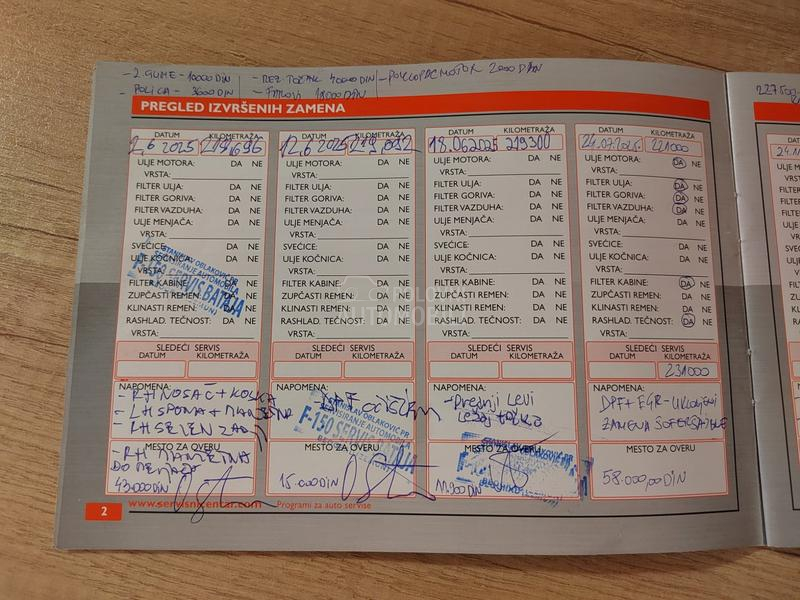 - 2 GUME - 10000 DIN - REZ. TOČAK 40000 DIN - POKLOPAC MOTOR 2000 DIN
- POLICA - 3600 DIN
PREGLED IZVRŠENIH ZAMENA
DATUM KILOMETRAŽA
2.6.2025
ULJE MOTORA: DA NE
VRSTA:
FILTER ULJA: DA NE
FILTER GORIVA: DA NE
FILTER VAZDUHA: DA NE
ULJE MENJAČA: DA NE
VRSTA:
SVEĆICE: DA NE
ULJE KOČNICA: DA NE
VRSTA:
FILTER KABINE: DA NE
ZUPČASTI REMEN: DA NE
KLINASTI REMEN: DA NE
RASHLAD. TEČNOST: DA NE
VRSTA:
SLEDEĆI SERVIS
DATUM KILOMETRAŽA
NAPOMENA:
- RH NOSAČ +
- LH SPONA +
MESTO ZA OVERU
43000 DIN
STANISLAV OBLAKOVIĆ PR
SERVISIRANJE AUTOMOBILA
F-150 SERVIS BATAJA
DATUM KILOMETRAŽA
12.6.2025
ULJE MOTORA: DA NE
VRSTA:
FILTER ULJA: DA NE
FILTER GORIVA: DA NE
FILTER VAZDUHA: DA NE
ULJE MENJAČA: DA NE
VRSTA:
SVEĆICE: DA NE
ULJE KOČNICA: DA NE
VRSTA:
FILTER KABINE: DA NE
ZUPČASTI REMEN: DA NE
KLINASTI REMEN: DA NE
RASHLAD. TEČNOST: DA NE
VRSTA:
SLEDEĆI SERVIS
DATUM KILOMETRAŽA
NAPOMENA:
MESTO ZA OVERU
15.000 DIN
STANISLAV OBLAKOVIĆ PR
SERVISIRANJE AUTOMOBILA
F-150 SERVIS BATAJA
DATUM KILOMETRAŽA
18.06.2025 219300
ULJE MOTORA: DA NE
VRSTA:
FILTER ULJA: DA NE
FILTER GORIVA: DA NE
FILTER VAZDUHA: DA NE
ULJE MENJAČA: DA NE
VRSTA:
SVEĆICE: DA NE
ULJE KOČNICA: DA NE
VRSTA:
FILTER KABINE: DA NE
ZUPČASTI REMEN: DA NE
KLINASTI REMEN: DA NE
RASHLAD. TEČNOST: DA NE
VRSTA:
SLEDEĆI SERVIS
DATUM KILOMETRAŽA
NAPOMENA:
- Prednji Levi
Ležaj točka
MESTO ZA OVERU
DATUM KILOMETRAŽA
24.07.2025. 221000
ULJE MOTORA: DA NE
VRSTA:
FILTER ULJA: DA NE
FILTER GORIVA: DA NE
FILTER VAZDUHA: DA NE
ULJE MENJAČA: DA NE
VRSTA:
SVEĆICE: DA NE
ULJE KOČNICA: DA NE
VRSTA:
FILTER KABINE: DA NE
ZUPČASTI REMEN: DA NE
KLINASTI REMEN: DA NE
RASHLAD. TEČNOST: DA NE
VRSTA:
SLEDEĆI SERVIS
DATUM KILOMETRAŽA
231000
NAPOMENA:
DPF + EGR - UKLONJENI
ZAMENA
MESTO ZA OVERU
58.000,00 DIN
2
www.servisnicentar.com Programi za auto servise